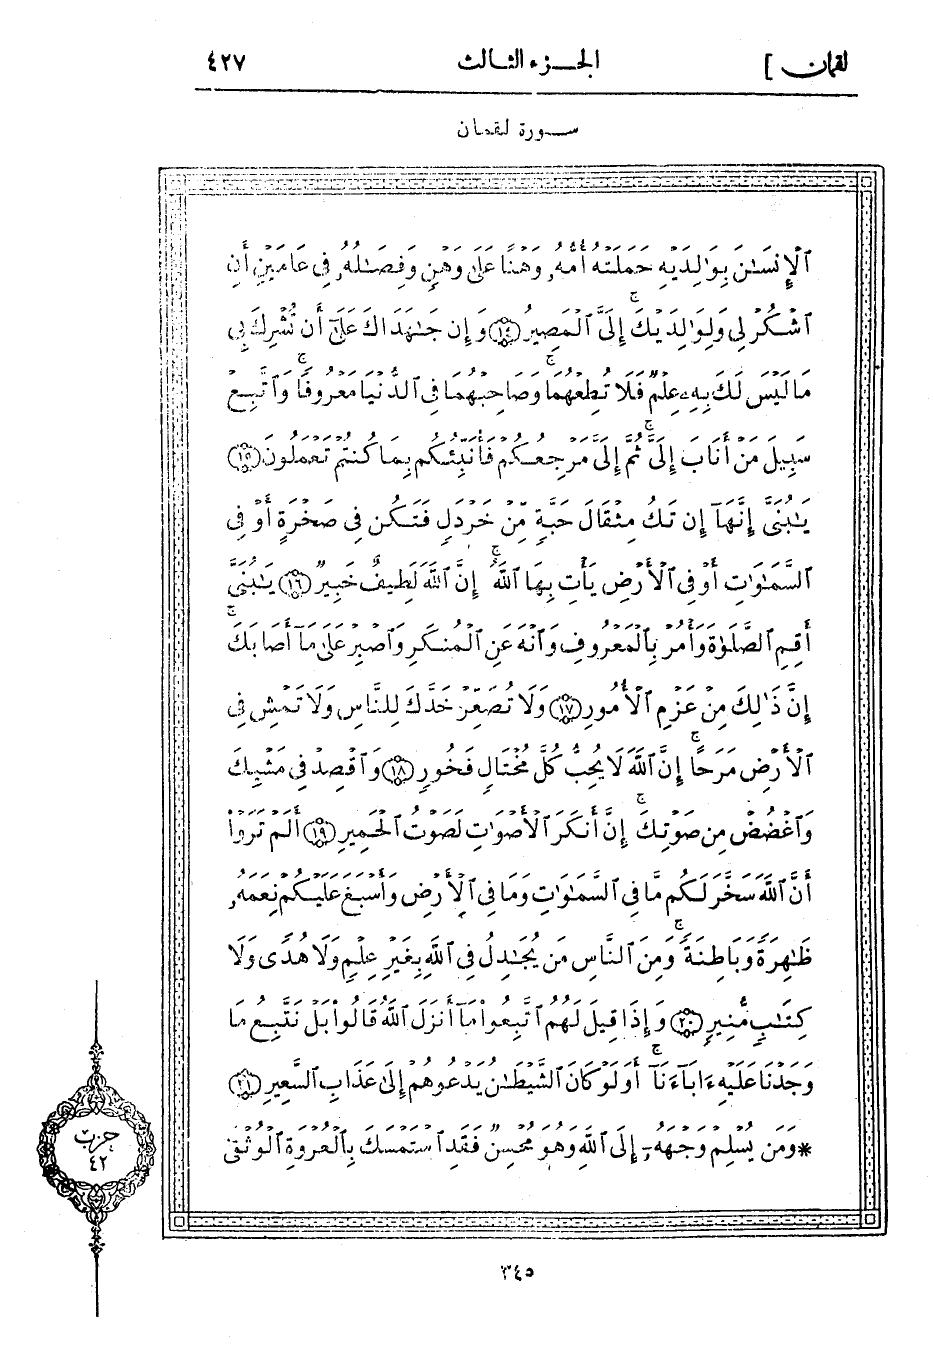 لقمان ]
الجزء الثالث
٤٢٧
سورة لقمان
ٱلْإِنسَٰنَ بِوَٰلِدَيْهِ حَمَلَتْهُ أُمُّهُۥ وَهْنًا عَلَىٰ وَهْنٍ وَفِصَٰلُهُۥ فِى عَامَيْنِ أَنِ
ٱشْكُرْ لِى وَلِوَٰلِدَيْكَ إِلَىَّ ٱلْمَصِيرُ ﴿١٤﴾ وَإِن جَٰهَدَاكَ عَلَىٰٓ أَن تُشْرِكَ بِى
مَا لَيْسَ لَكَ بِهِۦ عِلْمٌ فَلَا تُطِعْهُمَا ۖ وَصَاحِبْهُمَا فِى ٱلدُّنْيَا مَعْرُوفًا ۖ وَٱتَّبِعْ
سَبِيلَ مَنْ أَنَابَ إِلَىَّ ۚ ثُمَّ إِلَىَّ مَرْجِعُكُمْ فَأُنَبِّئُكُم بِمَا كُنتُمْ تَعْمَلُونَ ﴿١٥﴾
يَٰبُنَىَّ إِنَّهَآ إِن تَكُ مِثْقَالَ حَبَّةٍ مِّنْ خَرْدَلٍ فَتَكُن فِى صَخْرَةٍ أَوْ فِى
ٱلسَّمَٰوَٰتِ أَوْ فِى ٱلْأَرْضِ يَأْتِ بِهَا ٱللَّهُ ۚ إِنَّ ٱللَّهَ لَطِيفٌ خَبِيرٌ ﴿١٦﴾ يَٰبُنَىَّ
أَقِمِ ٱلصَّلَوٰةَ وَأْمُرْ بِٱلْمَعْرُوفِ وَٱنْهَ عَنِ ٱلْمُنكَرِ وَٱصْبِرْ عَلَىٰ مَآ أَصَابَكَ ۖ
إِنَّ ذَٰلِكَ مِنْ عَزْمِ ٱلْأُمُورِ ﴿١٧﴾ وَلَا تُصَعِّرْ خَدَّكَ لِلنَّاسِ وَلَا تَمْشِ فِى
ٱلْأَرْضِ مَرَحًا ۖ إِنَّ ٱللَّهَ لَا يُحِبُّ كُلَّ مُخْتَالٍ فَخُورٍ ﴿١٨﴾ وَٱقْصِدْ فِى مَشْيِكَ
وَٱغْضُضْ مِن صَوْتِكَ ۚ إِنَّ أَنكَرَ ٱلْأَصْوَٰتِ لَصَوْتُ ٱلْحَمِيرِ ﴿١٩﴾ أَلَمْ تَرَوْا۟
أَنَّ ٱللَّهَ سَخَّرَ لَكُم مَّا فِى ٱلسَّمَٰوَٰتِ وَمَا فِى ٱلْأَرْضِ وَأَسْبَغَ عَلَيْكُمْ نِعَمَهُۥ
ظَٰهِرَةً وَبَاطِنَةً ۗ وَمِنَ ٱلنَّاسِ مَن يُجَٰدِلُ فِى ٱللَّهِ بِغَيْرِ عِلْمٍ وَلَا هُدًى وَلَا
كِتَٰبٍ مُّنِيرٍ ﴿٢٠﴾ وَإِذَا قِيلَ لَهُمُ ٱتَّبِعُوا۟ مَآ أَنزَلَ ٱللَّهُ قَالُوا۟ بَلْ نَتَّبِعُ مَا
وَجَدْنَا عَلَيْهِ ءَابَآءَنَآ ۚ أَوَلَوْ كَانَ ٱلشَّيْطَٰنُ يَدْعُوهُمْ إِلَىٰ عَذَابِ ٱلسَّعِيرِ ﴿٢١﴾
* وَمَن يُسْلِمْ وَجْهَهُۥٓ إِلَى ٱللَّهِ وَهُوَ مُحْسِنٌ فَقَدِ ٱسْتَمْسَكَ بِٱلْعُرْوَةِ ٱلْوُثْقَىٰ
حزب
٤٢
٣٤٥